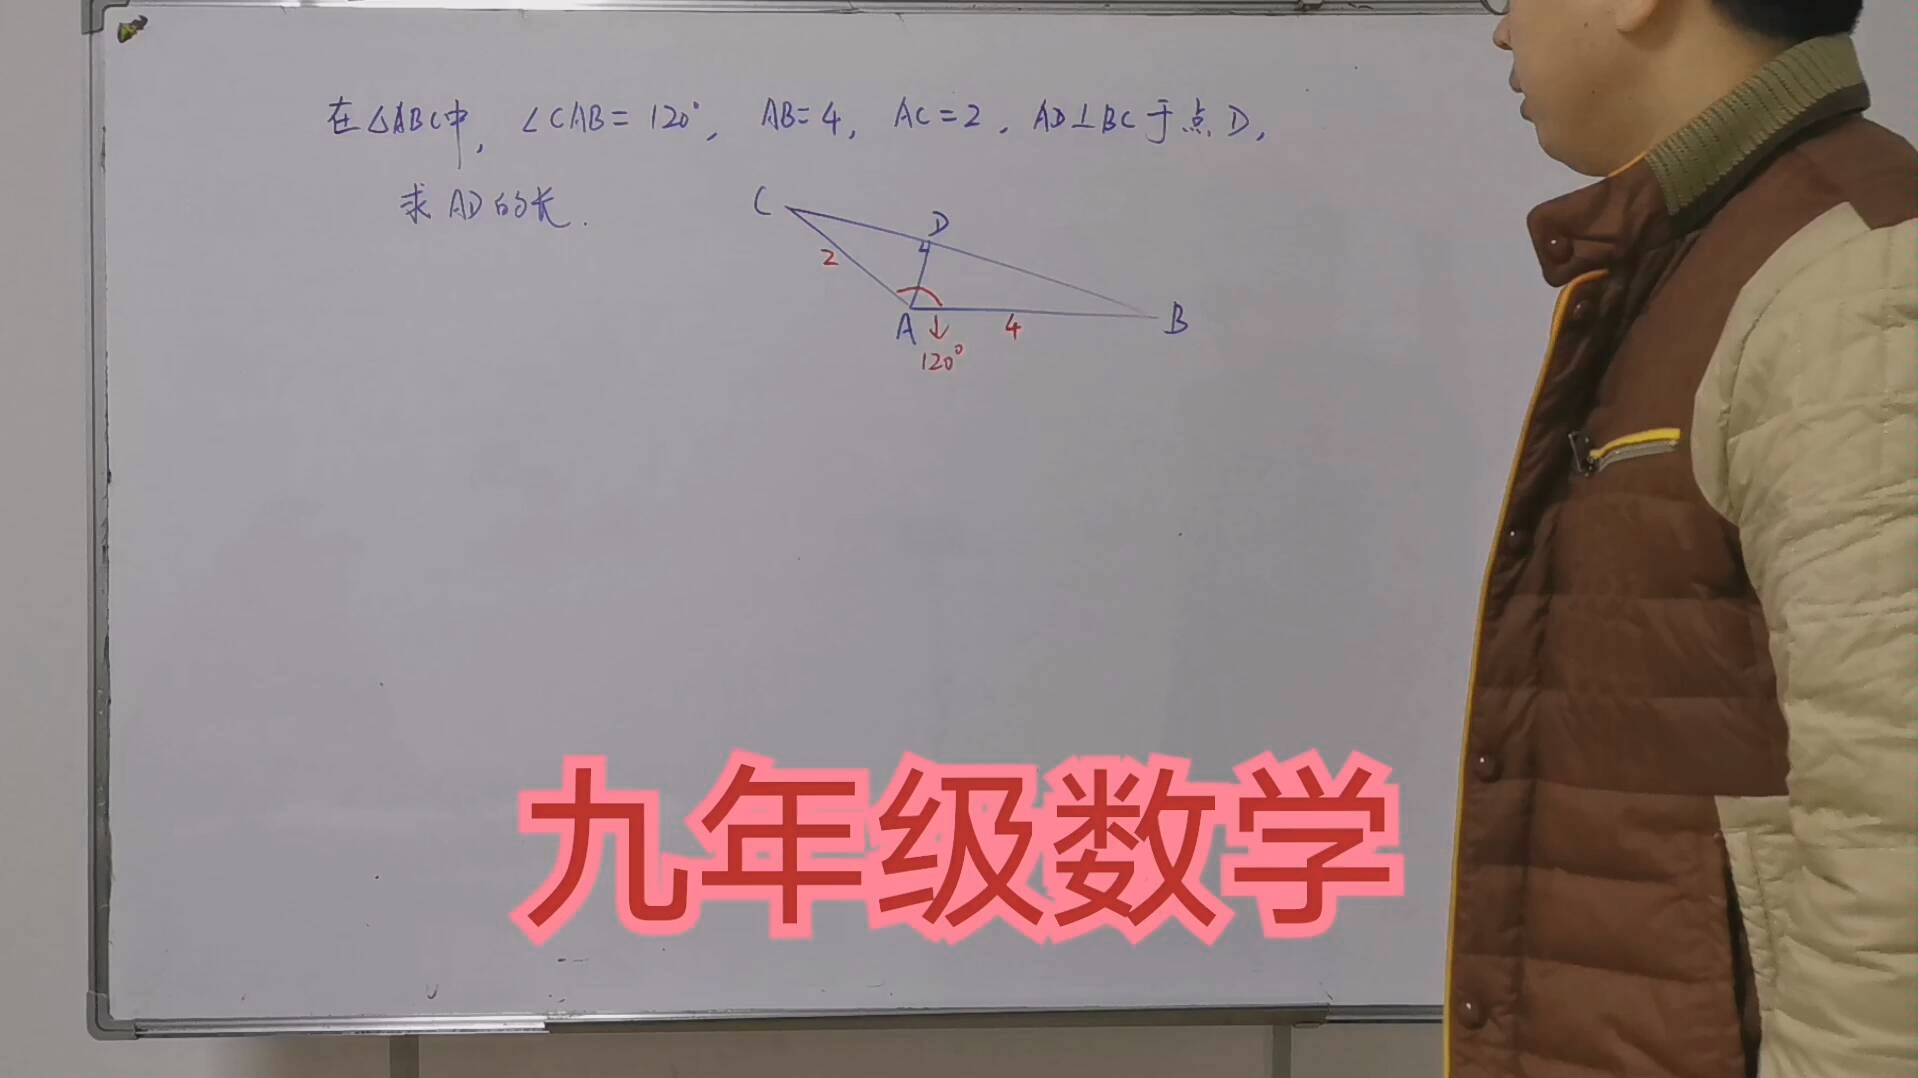 在△ABC中, ∠CAB=120°, AB=4, AC=2, AD⊥BC于点D,
求AD的长.
C
D
2
A
4
B
120°
九年级数学